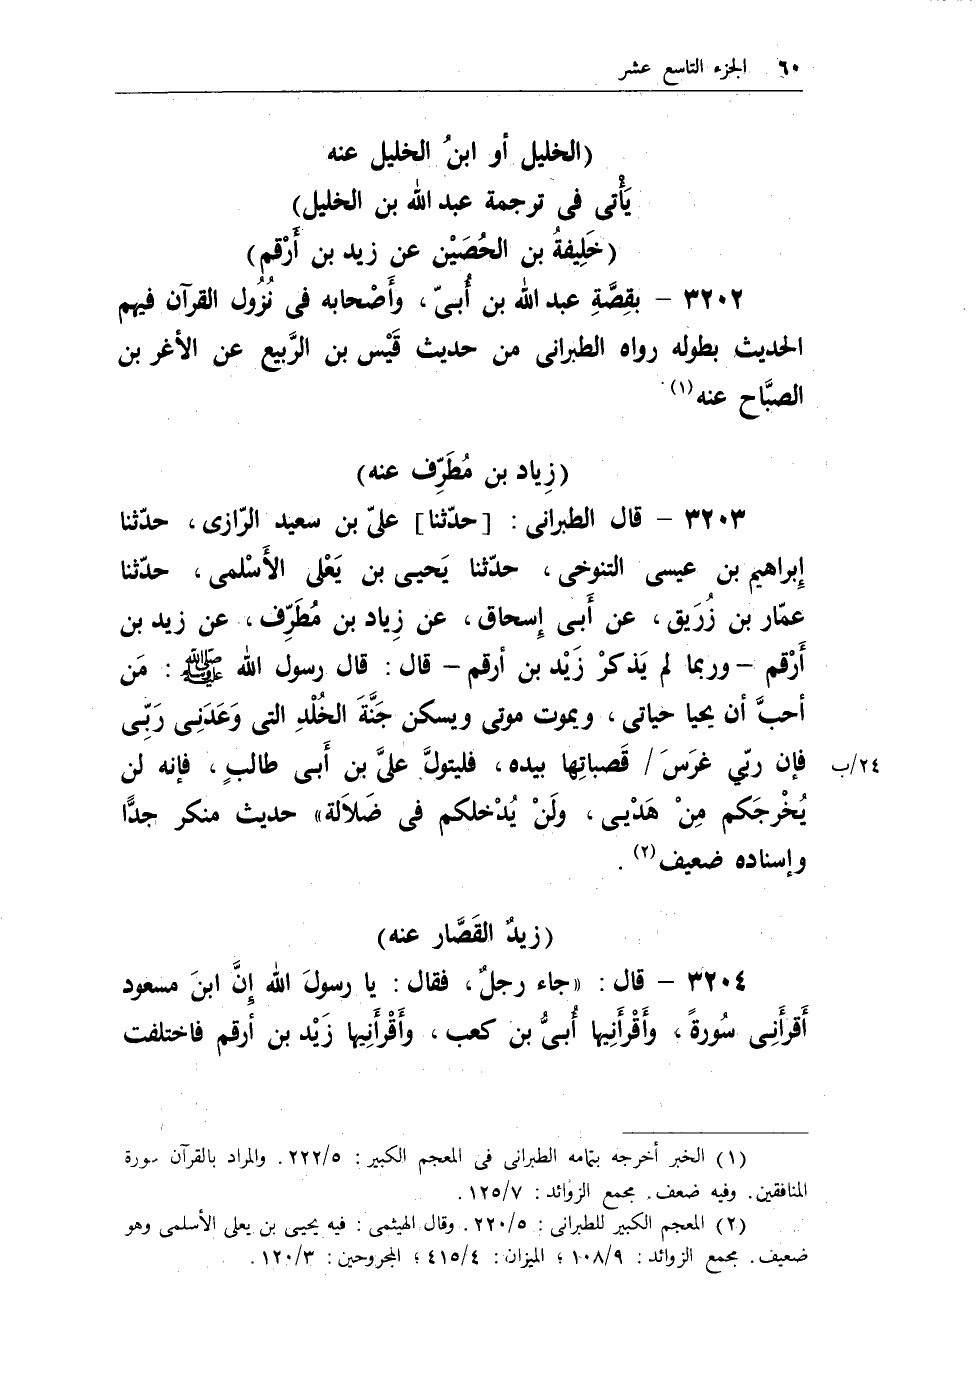 ٦٠ الجزء التاسع عشر
(الخليل أو ابنُ الخليل عنه
يَأْتى فى ترجمة عبد الله بن الخليل)
(خَلِيفةُ بن الحُصَيْن عن زيد بن أَرْقم)
٣٢٠٢ – بقِصَّةِ عبد الله بن أُبىّ ، وأَصْحابه فى نُزُول القرآن فيهم
الحديث بطوله رواه الطبرانى من حديث قَيْس بن الرَّبيع عن الأغر بن
الصبَّاح عنه(١) .
(زِياد بن مُطَرِّف عنه)
٣٢٠٣ – قال الطبرانى : [حدّثنا] علىّ بن سعيد الرّازى ، حدّثنا
إبراهيم بن عيسى التنوخى ، حدّثنا يَحيى بن يَعْلى الأَسْلمى ، حدّثنا
عمّار بن زُرَيق ، عن أَبى إسحاق ، عن زِياد بن مُطَرِّف ، عن زيد بن
أَرْقم –وربما لم يَذكرْ زَيْد بن أرقم– قال : قال رسول الله ﷺ : مَن
أحبَّ أن يحيا حياتى ، ويموت موتى ويسكن جَنَّةَ الخُلْدِ التى وَعَدَنِى رَبِّى
فإن ربّي غرَسَ / قَصباتِها بيده ، فليتولَّ علىَّ بن أَبى طالبٍ ، فإنه لن ٢٤/ب
يُخْرجَكم مِنْ هَدْيى ، ولَنْ يُدْخلكم فى ضَلاَلة» حديث منكر جدًّا
وإسناده ضعيف(٢) .
(زيدٌ القَصَّار عنه)
٣٢٠٤ – قال : «جاء رجلٌ ، فقال : يا رسولَ الله إنَّ ابنَ مسعود
أَقرأَنِى سُورةً ، وأَقْرأَنِيها أُبىُّ بن كعب ، وأَقْرأَنِيها زَيْد بن أرقم فاختلفت
(١) الخبر أخرجه بتمامه الطبرانى فى المعجم الكبير : ٢٢٢/٥ . والمراد بالقرآن سورة
المنافقين . وفيه ضعف . مجمع الزوائد : ١٢٥/٧ .
(٢) المعجم الكبير للطبرانى : ٢٢٠/٥ . وقال الهيثمى : فيه يحيى بن يعلى الأسلمى وهو
ضعيف . مجمع الزوائد : ١٠٨/٩ ؛ الميزان : ٤١٥/٤ ؛ المجروحين : ١٢٠/٣ .